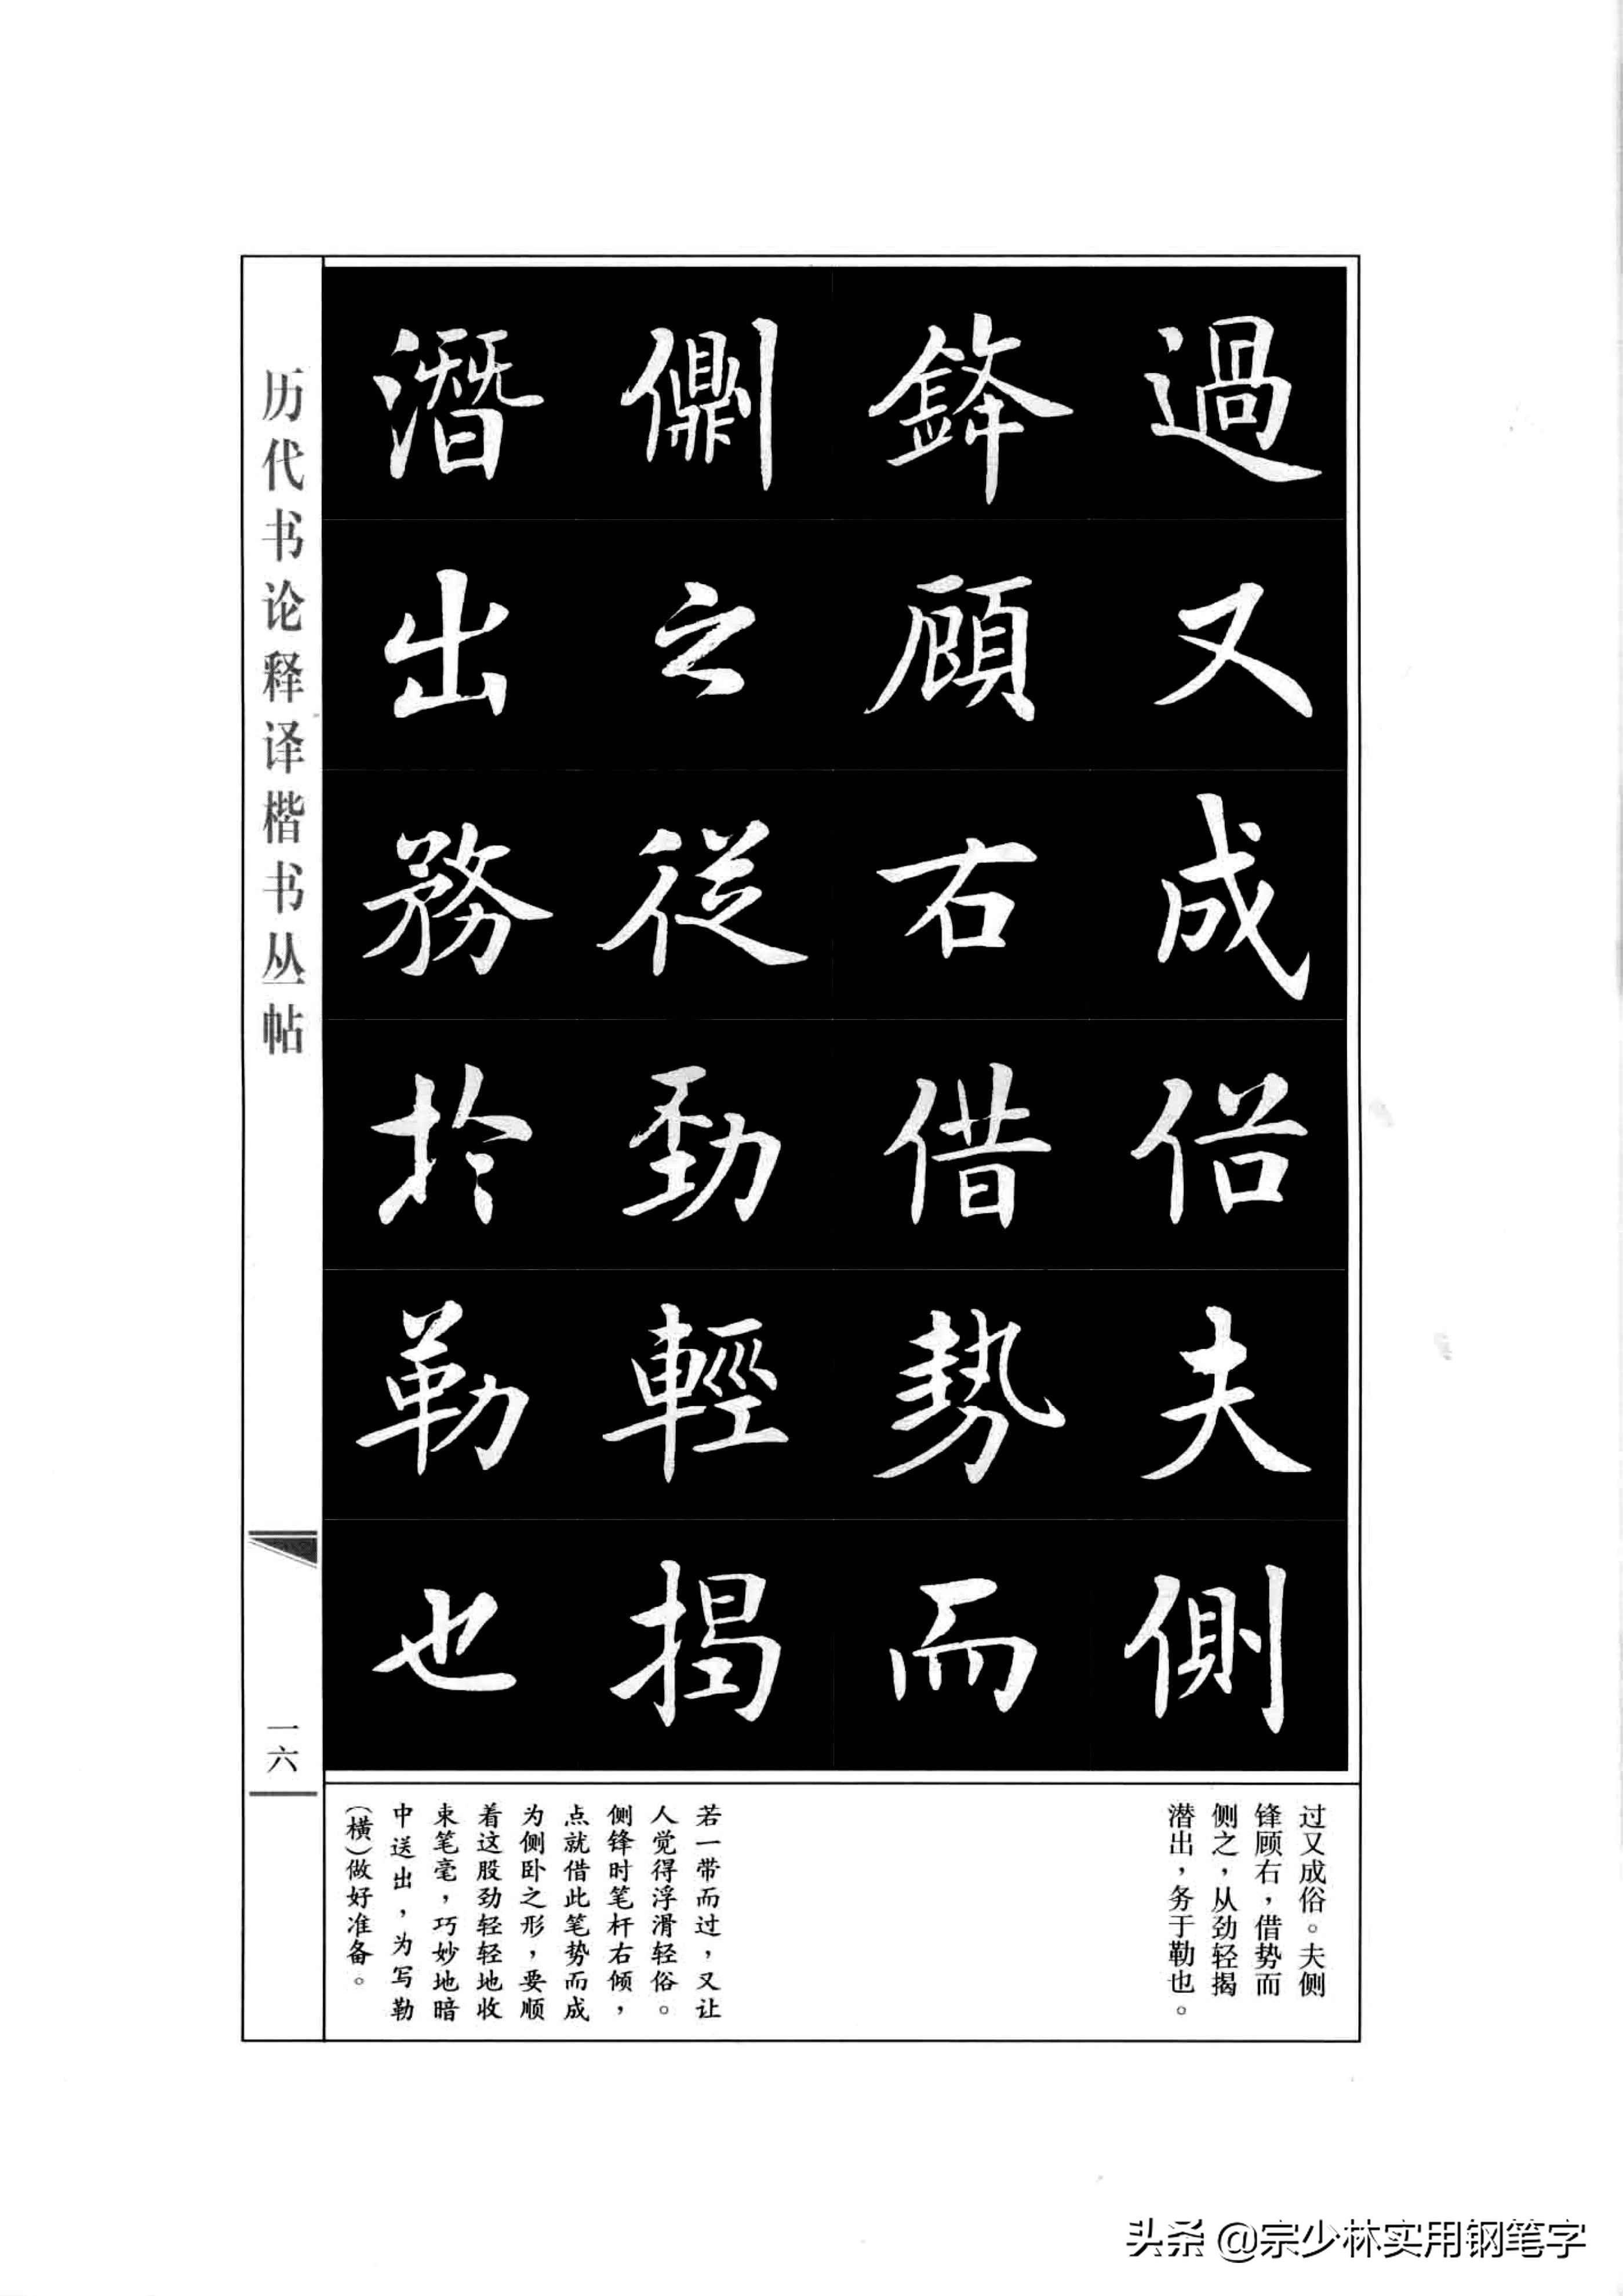 過又成俗夫側
鋒顧右借勢而
側之從勁輕揭
潛出務於勒也
过又成俗。夫侧
锋顾右，借势而
侧之，从劲轻揭
潜出，务于勒也。
若一带而过，又让
人觉得浮滑轻俗。
侧锋时笔杆右倾，
点就借此笔势而成
为侧卧之形，要顺
着这股劲轻轻地收
束笔毫，巧妙地暗
中送出，为写勒
（横）做好准备。
历代书论释译楷书丛帖
一六
头条 @宗少林实用钢笔字